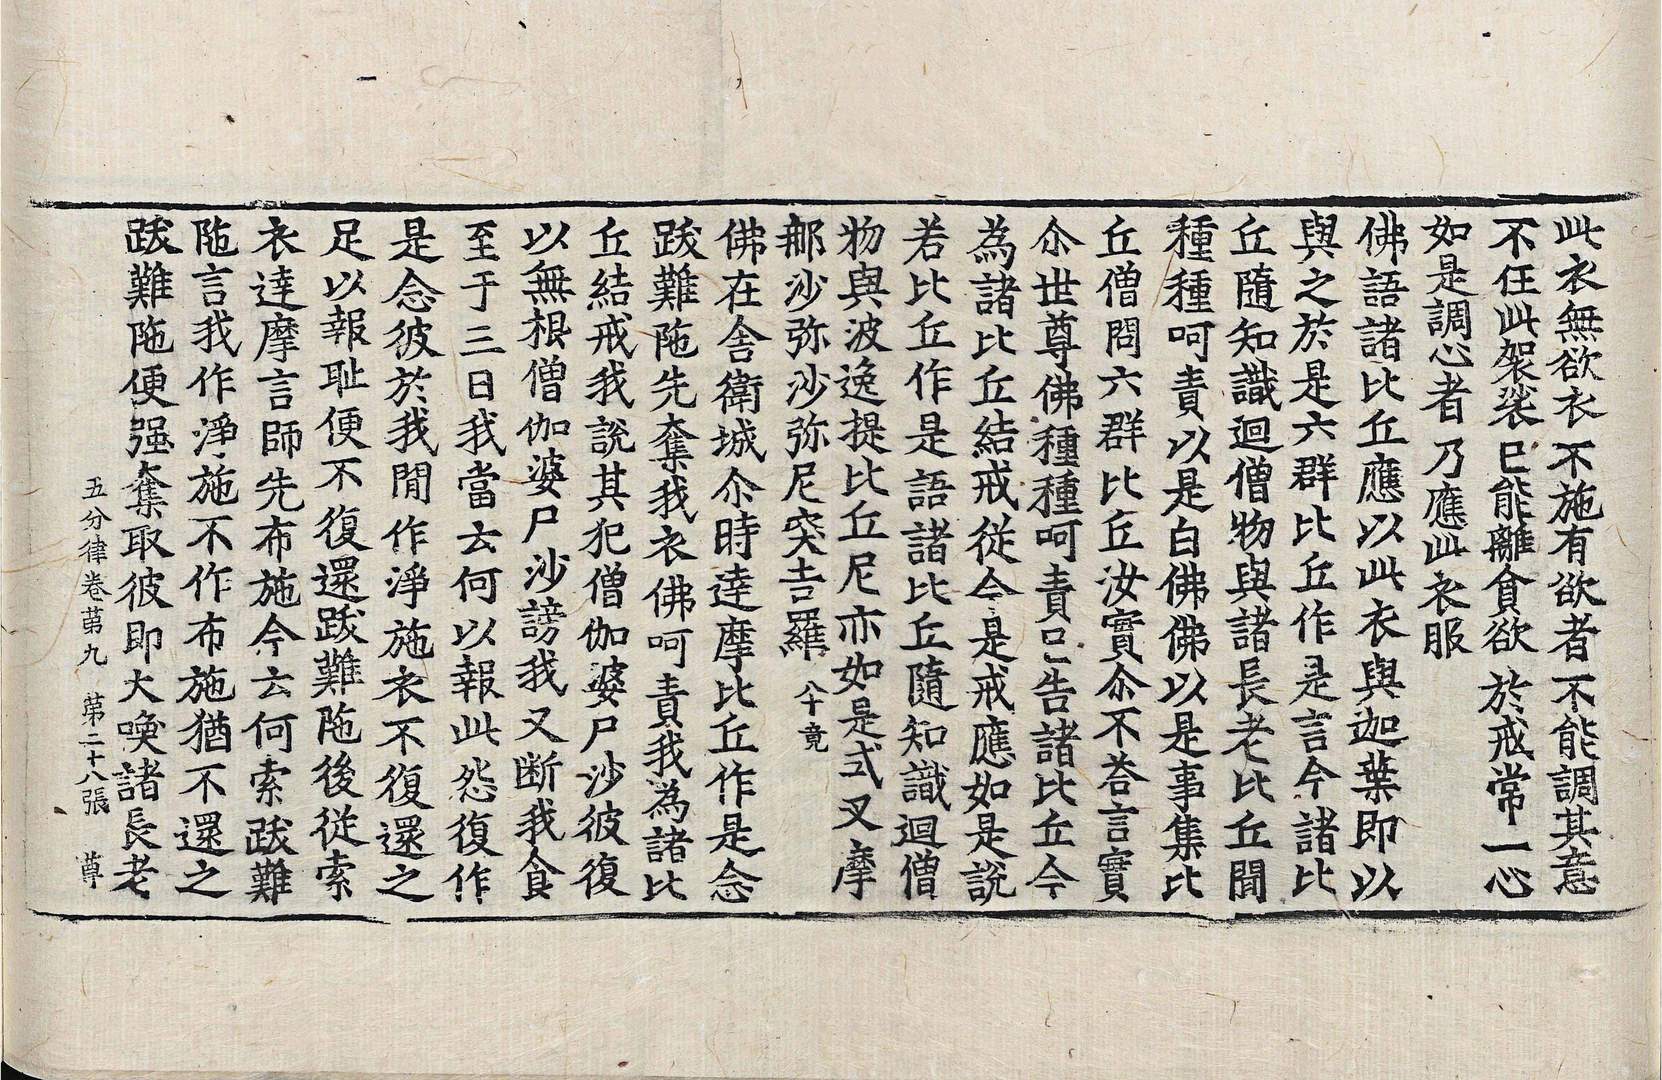 此衣無欲衣不施有欲者不能調其意
不任此袈裟已能離貪欲於戒常一心
如是調心者乃應此衣服
佛語諸比丘應以此衣與迦葉即以
與之於是六群比丘作是言今諸比
丘隨知識迴僧物與諸長老比丘聞
種種呵責以是白佛佛以是事集比
丘僧問六群比丘汝實尒不荅言實
尒世尊佛種種呵責已告諸比丘今
為諸比丘結戒從今是戒應如是說
若比丘作是語諸比丘隨知識迴僧
物與波逸提比丘尼亦如是式叉摩
那沙弥沙弥尼突吉羅 八十竟
佛在舍衛城尒時達摩比丘作是念
跋難陁先奪我衣佛呵責我為諸比
丘結戒我說其犯僧伽婆尸沙彼復
以無根僧伽婆尸沙謗我又断我食
至于三日我當云何以報此怨復作
是念彼於我間作淨施衣不復還之
足以報耻便不復還跋難陁後從索
衣達摩言師先布施今云何索跋難
陁言我作淨施不作布施猶不還之
跋難陁便强奪取彼即大喚諸長老
五分律卷苐九 苐二十八張 尊